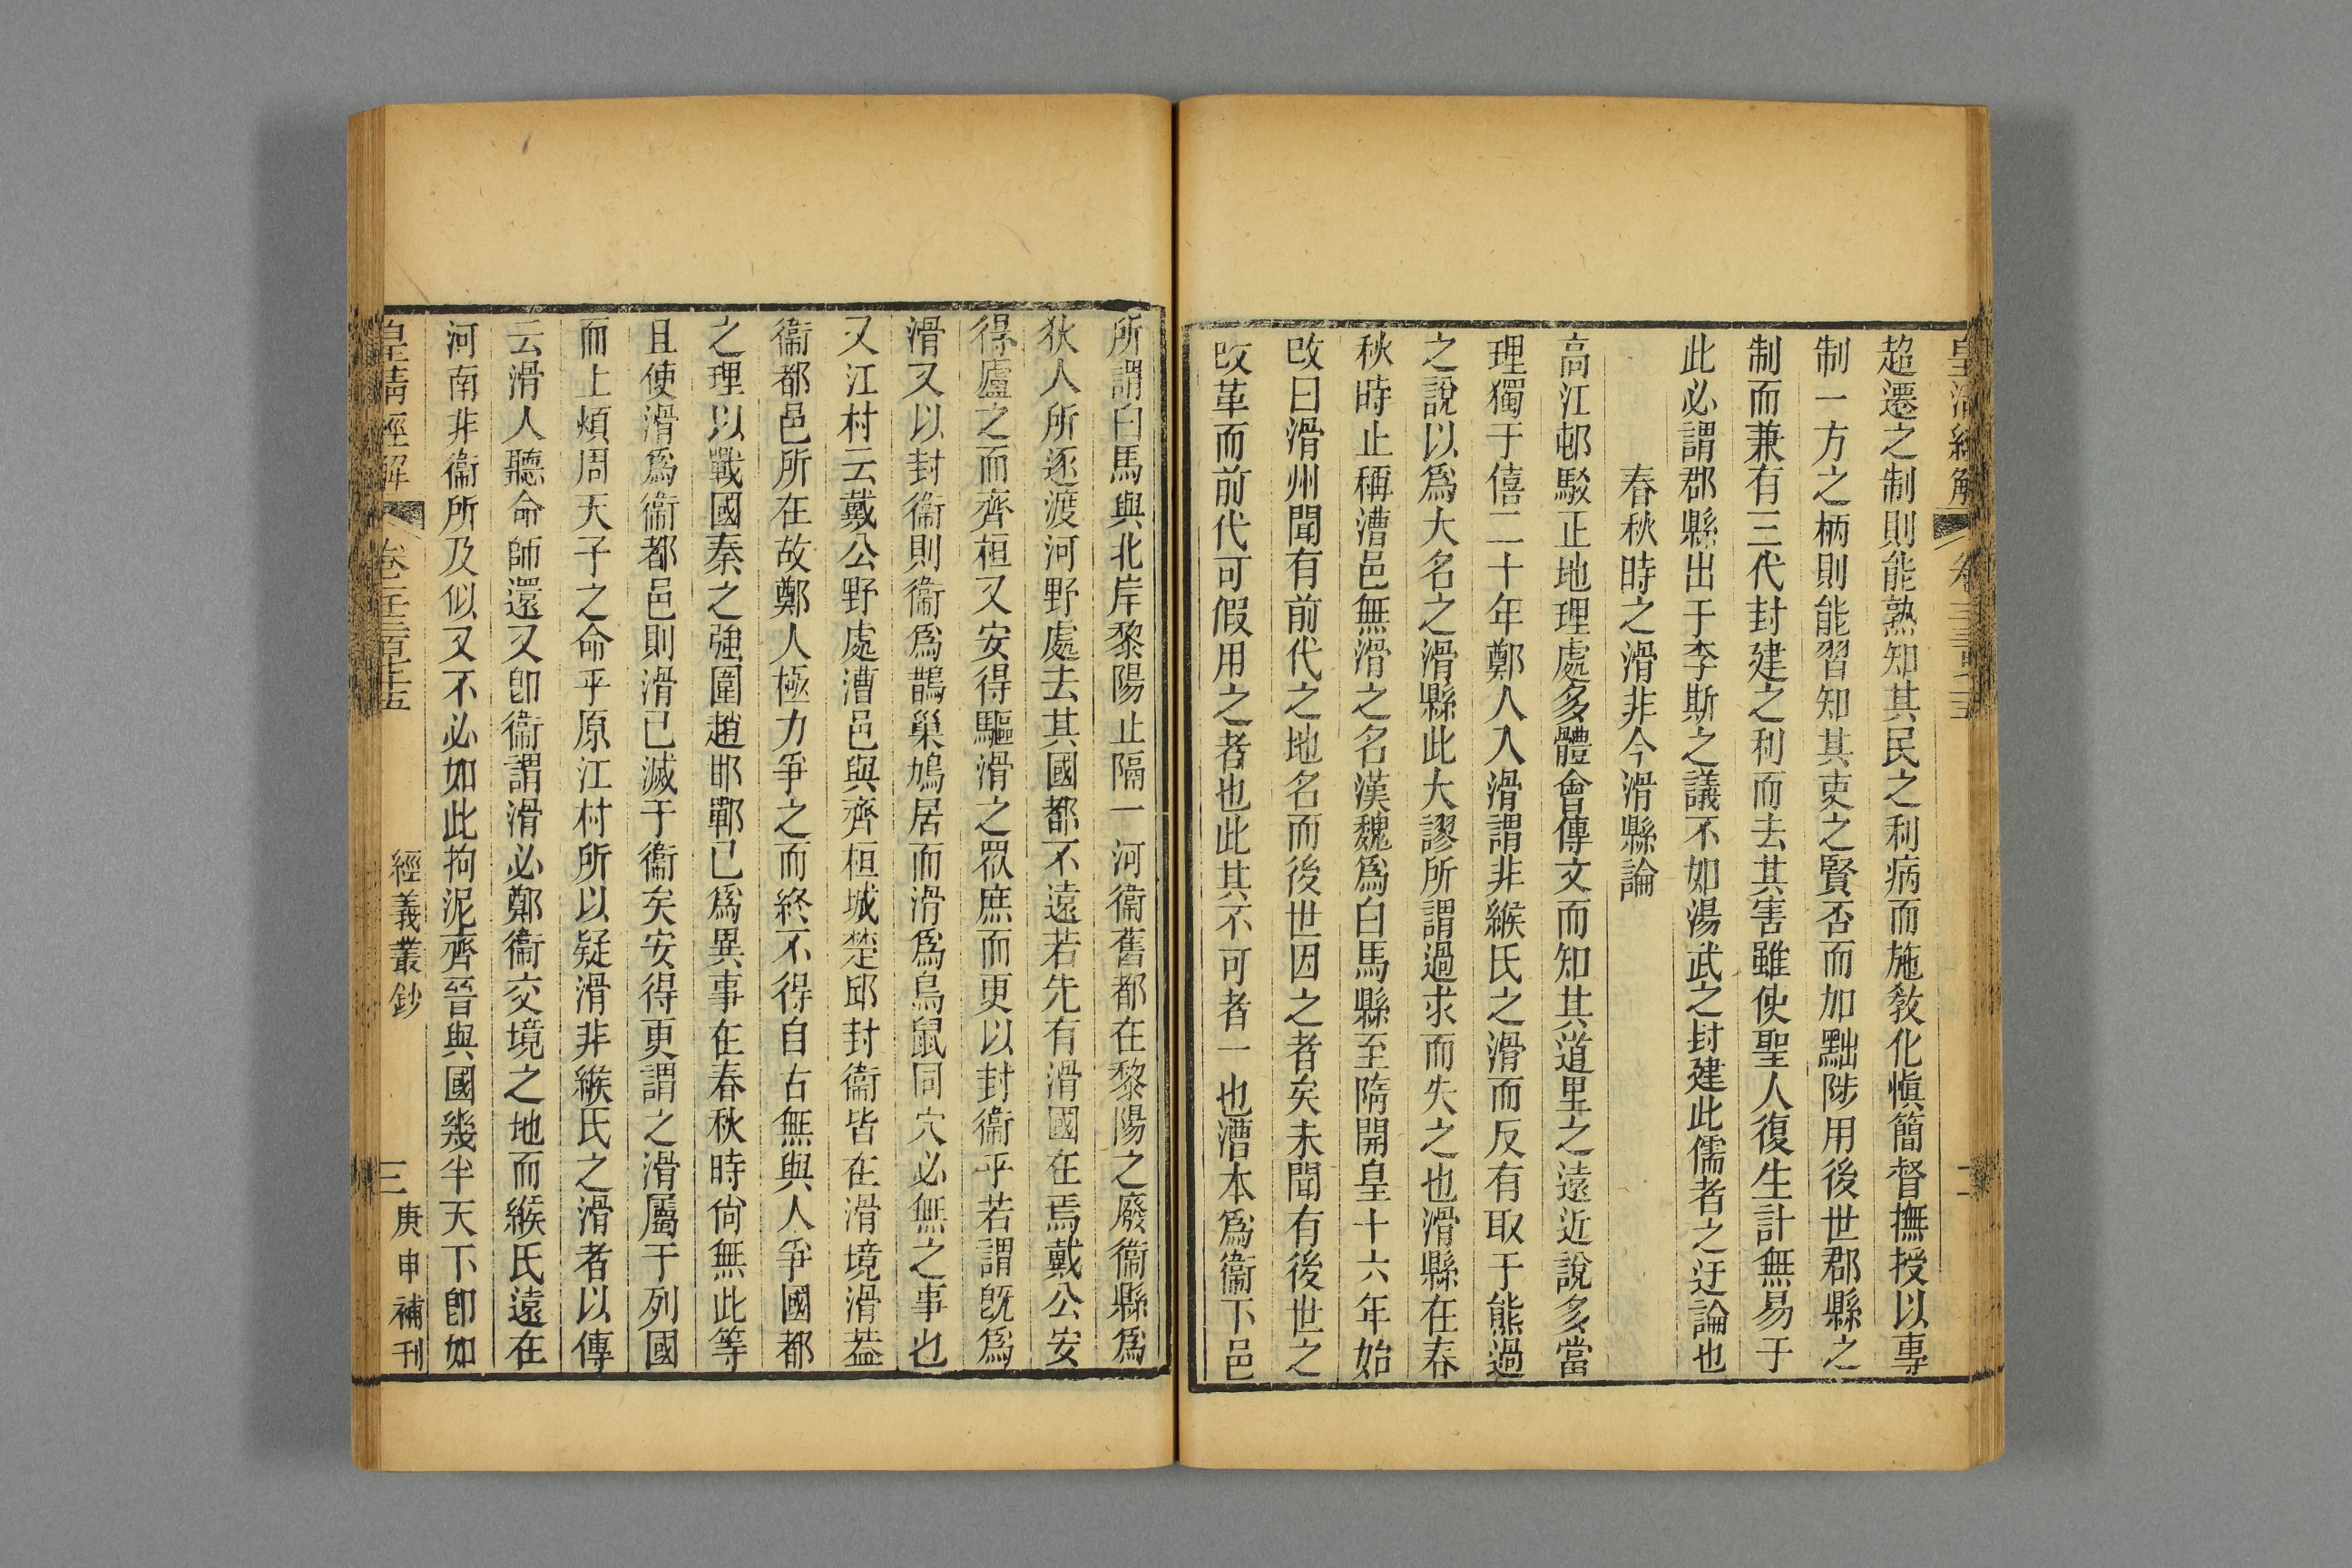 皇清經解
超遷之制則能熟知其民之利病而施敎化愼簡督撫授以專
制一方之柄則能習知其吏之賢否而加黜陟用後世郡縣之
制而兼有三代封建之利而去其害雖使聖人復生計無易于
此必謂郡縣出于李斯之議不如湯武之封建此儒者之迂論也
春秋時之滑非今滑縣論
高江邨駁正地理處多體會傳文而知其道里之遠近說多當
理獨于僖二十年鄭人入滑謂非緱氏之滑而反有取于熊過
之說以爲大名之滑縣此大謬所謂過求而失之也滑縣在春
秋時止稱漕邑無滑之名漢魏爲白馬縣至隋開皇十六年始
改曰滑州聞有前代之地名而後世因之者矣未聞有後世之
改革而前代可假用之者也此其不可者一也漕本爲衞下邑
所謂白馬與北岸黎陽止隔一河衞舊都在黎陽之廢衞縣爲
狄人所逐渡河野處去其國都不遠若先有滑國在焉戴公安
得廬之而齊桓又安得驅滑之眾庶而更以封衞乎若謂旣爲
滑又以封衞則衞爲鵲巢鳩居而滑爲鳥鼠同穴必無之事也
又江村云戴公野處漕邑與齊桓城楚邱封衞皆在滑境滑葢
衞都邑所在故鄭人極力爭之而終不得自古無與人爭國都
之理以戰國秦之強圍趙邯鄲已爲異事在春秋時尙無此等
且使滑爲衞都邑則滑已滅于衞矣安得更謂之滑屬于列國
而上煩周天子之命乎原江村所以疑滑非緱氏之滑者以傳
云滑人聽命師還又卽衞謂滑必鄭衞交境之地而緱氏遠在
河南非衞所及似又不必如此拘泥齊晉與國幾半天下卽如
皇清經解
卷一千三百七十五
經義叢鈔
三
庚申補刊